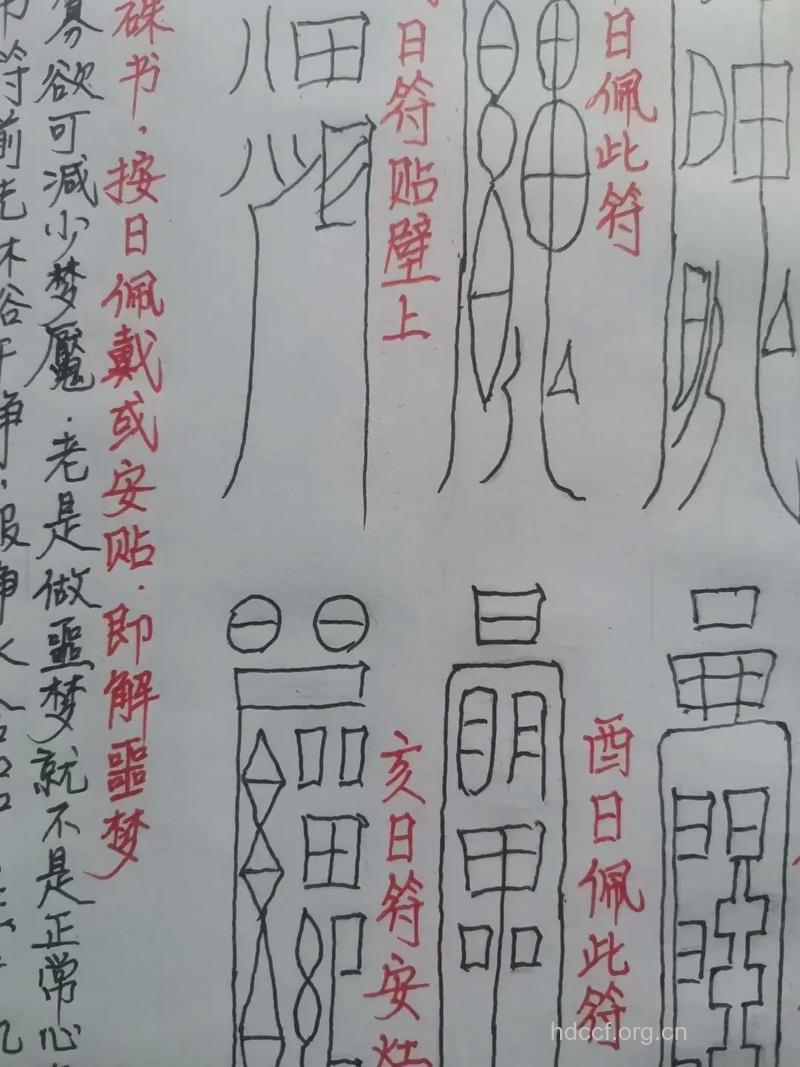 日佩此符
日符贴壁上
酉日佩此符
亥日符安灶
硃书·按日佩戴或安贴·即解噩梦
寡欲可减少梦魇·老是做噩梦就不是正常心
符前先沐浴干净·服净
hdccf.org.cn